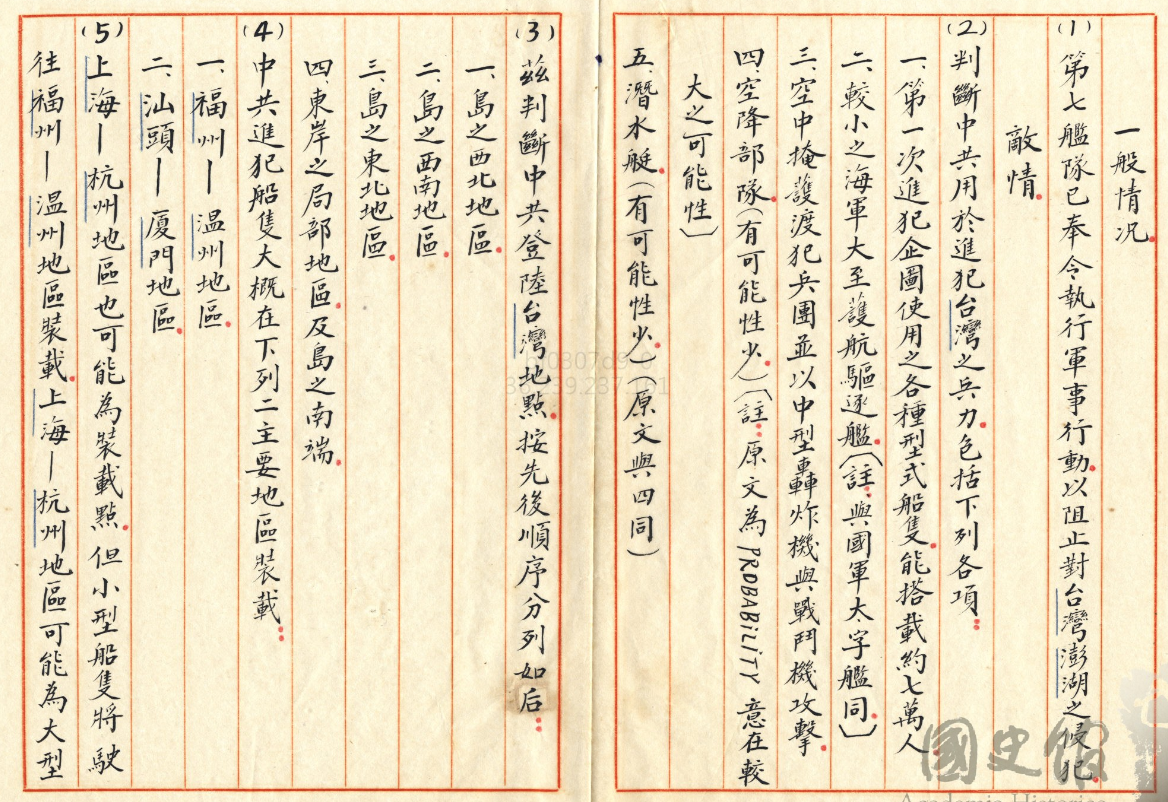 一般情況。
(1)第七艦隊已奉令執行軍事行動。以阻止對台灣澎湖之侵犯。
敵情。
(2)判斷中共用於進犯台灣之兵力。包括下列各項：
一、第一次進犯企圖使用之各種型式船隻。能搭載約七萬人。
二、較小之海軍大至護航驅逐艦。(註：與國軍太字艦同。)
三、空中掩護渡犯兵團並以中型轟炸機與戰鬥機攻擊。
四、空降部隊。(有可能性少。)(註：原文為PROBABiLiTY意在較
大之可能性)
五、潛水艇。(有可能性少。)原文與四同)
(3)茲判斷中共登陸台灣地點。按先後順序分列如后：
一、島之西北地區。
二、島之西南地區。
三、島之東北地區。
四、東岸之局部地區。及島之南端。
(4)中共進犯船隻大概在下列二主要地區裝載：
一、福州—溫州地區。
二、汕頭—廈門地區。
(5)上海—杭州地區也可能為裝載點。但小型船隻將駛
往福州—溫州地區裝載。上海—杭州地區可能為大型
國史館
Academia Historica